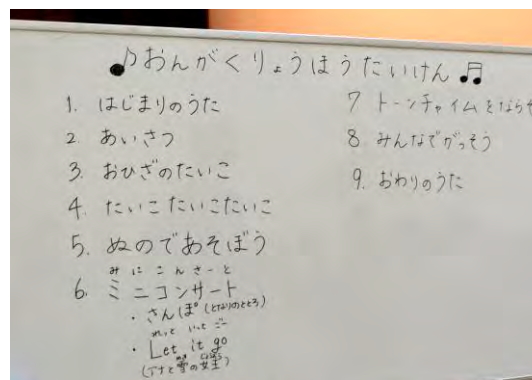 ♪おんがくりょうほうたいけん♬
1. はじまりのうた
2 あいさつ
3. おひざのたいこ
4. たいこ たいこたいこ
5. ぬのであそぼう
みにこんさーと
6. ミニコンサート
・さんぽ (となりのととろ)
れっと いっと ごー
・Let it go
(アナと雪の女王)
7 トーンチャイムをならそ
8 みんなでがっそう
9. おわりのうた